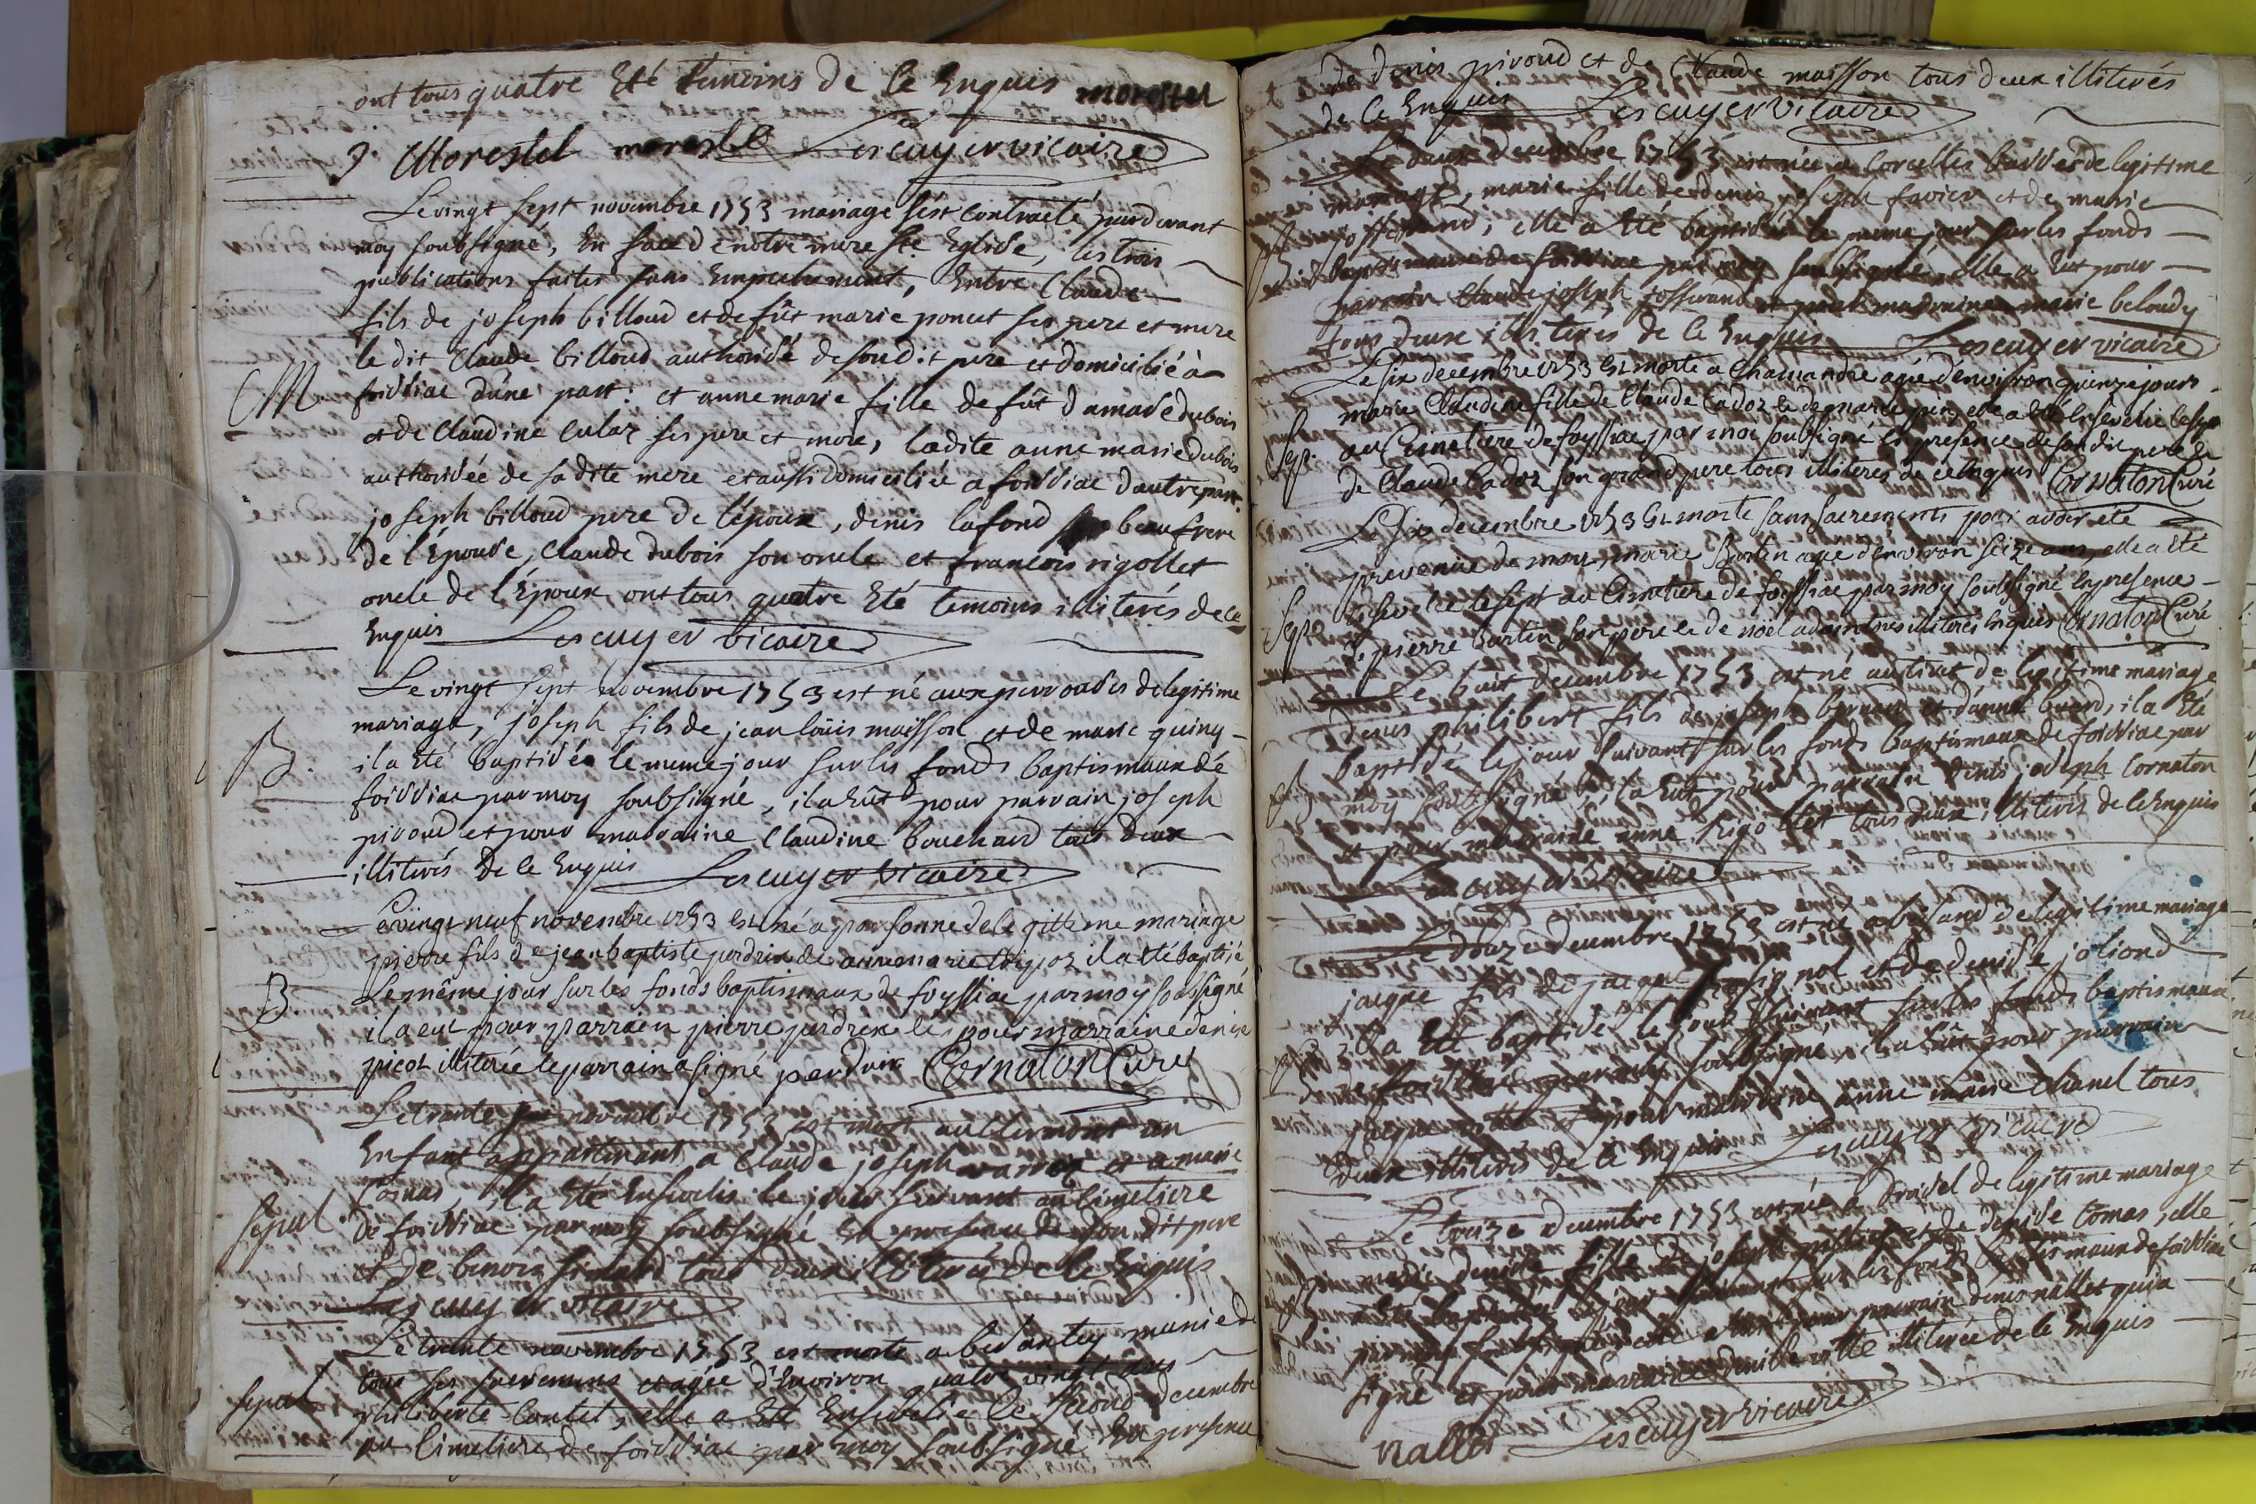 ont tous quatre Eté temoins de ce Enquis morestel
J Morestel morestel Lescuyer vicaire
Le vingt sept novembre 1753 mariage s'est contracté pardevant
moy soubsigné, En face de nôtre mere Ste Eglise, les trois
publications faites sans Empechement, Entre Claude
fils de joseph billoud et de fût marie poncet ses pere et mere
le dit Claude billoud authorisé de son dit pere et domicilié à
M
foissiac d'une part : et anne marie fille de fût d'amase dubois
et de Claudine Culaz ses pere et mere, ladite anne marie dubois
authorisée de sa dite mere et aussi domiciliée a foissiac d'autre part.
joseph billoud pere de l'époux, denis lafond beau frere
de l'Épouse, Claude dubois son oncle et francois rigollet
oncle de l'Époux ont tous quatre Eté temoins illiterés de ce
Enquis Lescuyer vicaire
Le vingt sept novembre 1753 est né aux perrouses de legitime
mariage, joseph fils de jean loüis moisson et de marie quiny
B.
il a Eté baptisé le meme jour sur les fonds baptismaux de
foissiac par moy soubsigné, il a Eût pour parrain joseph
piroud et pour marraine Claudine bouchard tous deux
illiterés de ce Enquis Lescuyer vicaire
Le vingt neuf novembre 1753 est né a parsonne de legitteme mariage
pierre fils de jean baptiste perdrix de anne marie il a été baptisé
B.
Le même jour sur les fonds baptismaux de foyssiac par moy soussigné
il a eut pour parrain pierre perdrix et pour marraine denise
picot illiterée le parrain a signé perdrix Cornaton Curé
Le trente novembre 1753 est mort au Clermont un
Enfant appartenant a Claude joseph varrox et a marie
Comas, il a Eté Ensevelis le jour suivant au Cimetiere
Sepul.
de foissiac par moy soubsigné En presence de son dit pere
et de benoix tous deux illiterés de ce Enquis
Lescuyer vicaire
Le trente novembre 1753 est morte a besantey munie de
tous ses sacremens et agée d'Environ quatre vingt ans
Sepul
philiberte Contet, elle a Eté Ensevelie le second decembre
au Cimetiere de foissiac par moy soubsigné En presence
de denis piroud et de Claude moisson tous deux illiterés
de ce Enquis Lescuyer vicaire
Le deux decembre 1753 est née a Corcelles de legitime
mariage, marie fille de denis joseph favier et de marie
josserand, elle a Eté baptisée le meme jour sur les fonds
baptismaux de foissiac par moy soubsigné, elle a Eut pour
parrain Claude joseph josserand et pour marraine marie beloudy
tous deux illiterés de ce Enquis Lescuyer vicaire
Le six decembre 1753 est morte a Chamandre agée d'environ quinze jours
marie Claudine fille de Claude Cadoz et de marie elle a été Ensevelie le sept
Sep.
au Cimetiere de foyssiac par moi soubsigné En presence de son dit pere et
de Claude Cadoz son grand pere tous illiteres de ce Enquis Cornaton Curé
Le Six decembre 1753 est morte sans sacrements pour avoir été
prevenüe de mort, marie Burtin agée d'environ seize ans, elle a été
Sep.
Ensevelie le sept au Cimetiere de foissiac par moy soubsigné En presence
de pierre burtin son pere et de noël illiteres Enquis Cornaton Curé
Le huit decembre 1753 est né au tiret de legitime mariage
denis philibert fils de joseph bernard et d'anne buerd, il a Eté
baptisé le jour suivant sur les fonds baptismaux de foissiac par
B
moy soubsigné, il a Eut pour parrain denis joseph Cornaton
et pour marraine anne rigollet tous deux illiterés de ce Enquis
Lescuyer vicaire
Le douze decembre 1753 est né a de legitime mariage
jacque fils de jacque rossignol et de denise joliond
il a Eté baptisé le jour suivant sur les fonds baptismaux
de foissiac par moy soubsigné, il a Eût pour parrain
jacque et pour marraine anne marie Chanel tous
deux illiterés de ce Enquis Lescuyer vicaire
Le treize decembre 1753 est née a de legitime mariage
marie denise fille de joseph et de denise Comas, elle
a Eté baptisée le jour suivant sur les fonds baptismaux de foissiac
par moy soubsigné, elle a Eut pour parrain denis nallet qui a
signé et pour marraine denise illiterée de ce Enquis
nallet Lescuyer vicaire